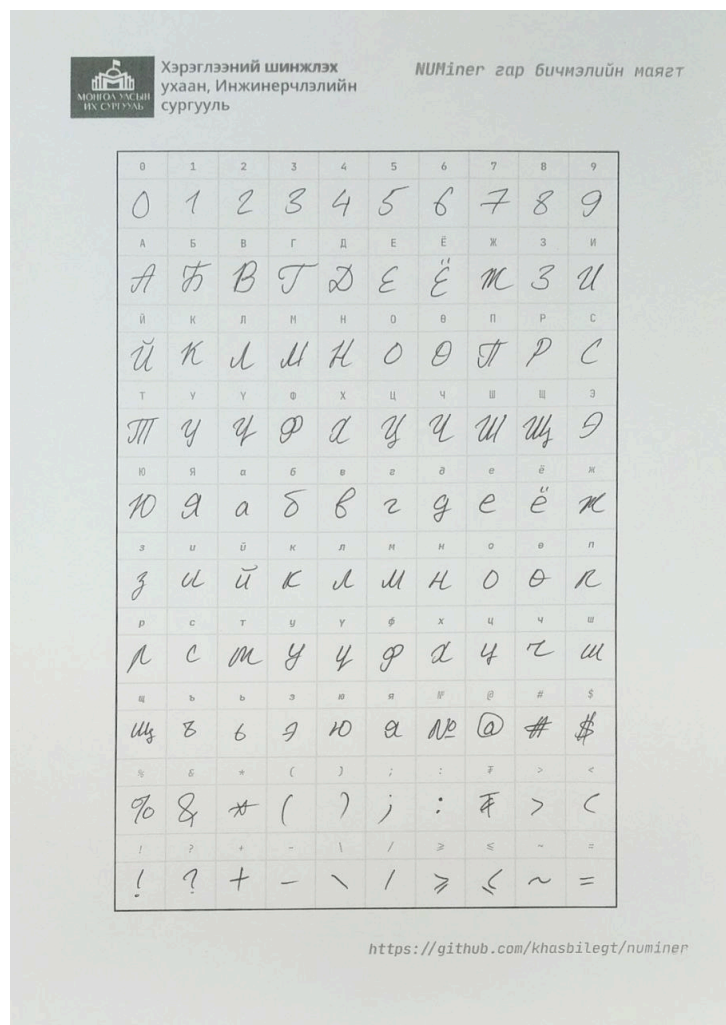 Хэрэглээний шинжлэх
ухаан, Инжинерчлэлийн
сургууль
МОНГОЛ УЛСЫН
ИХ СУРГУУЛЬ
NUMiner гар бичмэлийн маягт
0 1 2 3 4 5 6 7 8 9
0 1 2 3 4 5 6 7 8 9
А Б В Г Д Е Ё Ж З И
А Б В Г Д Е Ё Ж З И
Й К Л М Н О Ө П Р С
Й К Л М Н О Ө П Р С
Т У Ү Ф Х Ц Ч Ш Щ Э
Т У Ү Ф Х Ц Ч Ш Щ Э
Ю Я а б в г д е ё ж
Ю Я а б в г д е ё ж
з и й к л м н о ө п
з и й к л м н о ө п
р с т у ү ф х ц ч ш
р с т у ү ф х ц ч ш
щ ъ ь э ю я № @ # $
щ ъ ь э ю я № @ # $
% & * ( ) ; : ₮ > <
% & * ( ) ; : ₮ > <
! ? + - \ / ⩾ ⩽ ~ =
! ? + - \ / ⩾ ⩽ ~ =
https://github.com/khasbilegt/numiner